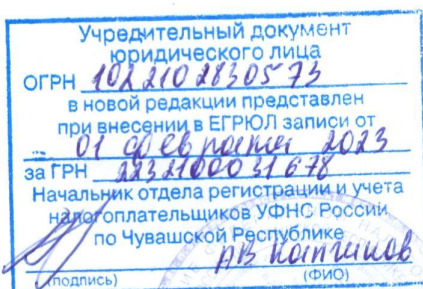 Учредительный документ
юридического лица
ОГРН 1022102830573
в новой редакции представлен
при внесении в ЕГРЮЛ записи от
01 февраля 2023
за ГРН 2232100031678
Начальник отдела регистрации и учета
налогоплательщиков УФНС России
по Чувашской Республике
АВ
(подпись) (ФИО)